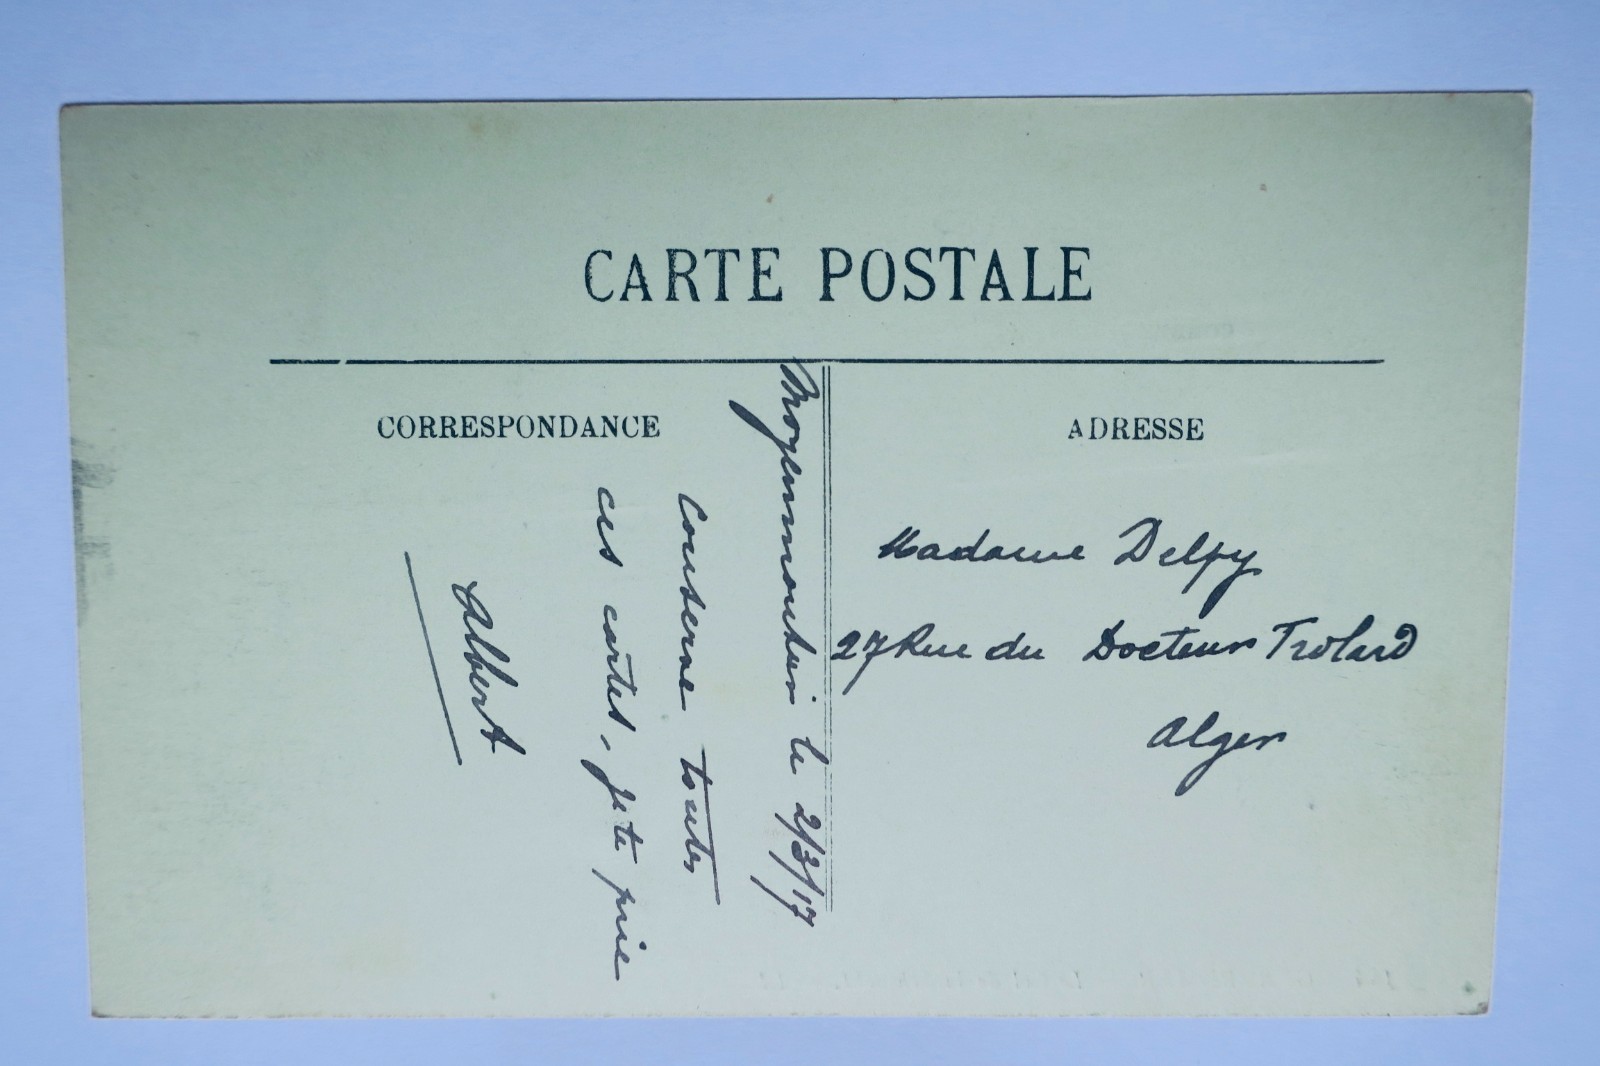 CARTE POSTALE
CORRESPONDANCE
ADRESSE
Moyenmoutier le 2/3/17
Conserve toutes
ces cartes, je te prie
Albert
Madame Delpy
27 Rue du Docteur Trolard
Alger